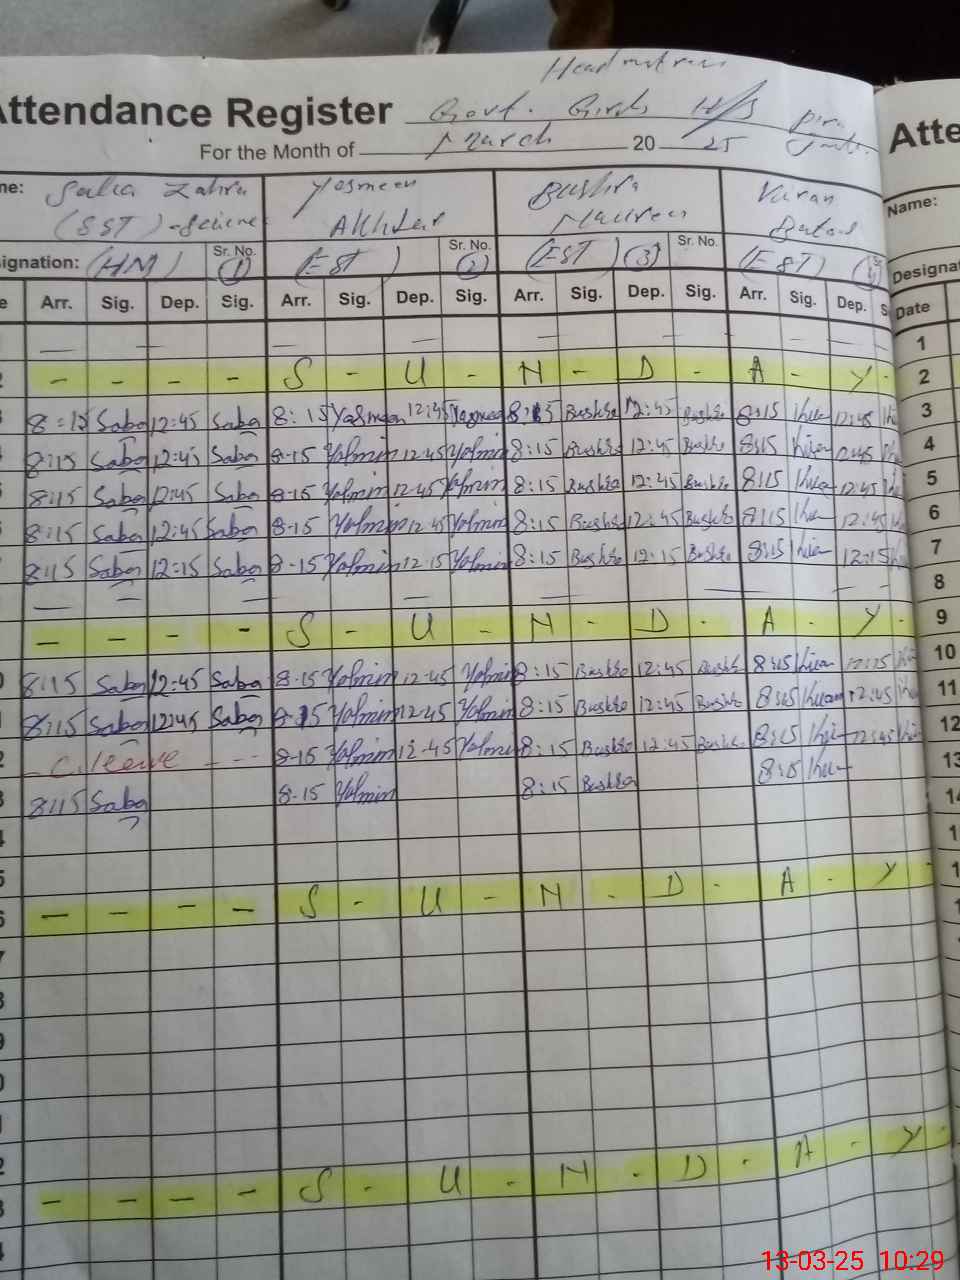 Headmistress
Attendance Register Govt. Girls H/S
For the Month of March 20 25 Atte
me: Yasmeen Bushra Kiran Name:
(SST) - Science Akhtar Batool
signation: (HM) Sr. No. (1) (EST) Sr. No. (2) (EST) (3) Sr. No. (EST) Designat
e Arr. Sig. Dep. Sig. Arr. Sig. Dep. Sig. Arr. Sig. Dep. Sig. Arr. Sig. Dep. S Date
— — — — — — — 1
2 - - - - S - U - N - D - A - Y - 2
8:15 Saba 12:45 Saba 8:15 Yasmeen 12:45 Yasmeen 8:15 Bushra 12:45 Bushra 8:15 12:45 3
8:15 Saba 12:45 Saba 8-15 Yasmin 12-45 Yasmin 8:15 Bushra 12:45 Bushra 8:15 Kiran 12:45 4
8:15 Saba 12:45 Saba 8-15 Yasmin 12-45 Yasmin 8:15 Bushra 12:45 Bushra 8:15 12:45 5
8:15 Saba 12:45 Saba 8-15 Yasmin 12-45 Yasmin 8:15 Bushra 12:45 Bushra 8:15 12:45 6
8:15 Saba 12:15 Saba 8-15 Yasmin 12-15 Yasmin 8:15 Bushra 12:15 Bushra 8:15 12:15 7
— — — — — — 8
- - - - S - U - N - D - A - Y - 9
8:15 Saba 12:45 Saba 8-15 Yasmin 12-45 Yasmin 8:15 Bushra 12:45 Bushra 8:15 Kiran 10
8:15 Saba 12:45 Saba 8-15 Yasmin 12-45 Yasmin 8:15 Bushra 12:45 Bushra 8:15 Kiran 12:45 11
2 - C. leave - - - 8-15 Yasmin 12-45 Yasmin 8:15 Bushra 12:45 Bushra 8:15 12:45 12
3 8:15 Saba 8-15 Yasmin 8:15 Bushra 8:15 13
4 14
5
6 - - - - S - U - N - D - A - Y -
7
8
9
0
1
2
3 - - - - S - U - N - D - A - Y -
4
13-03-25 10:29